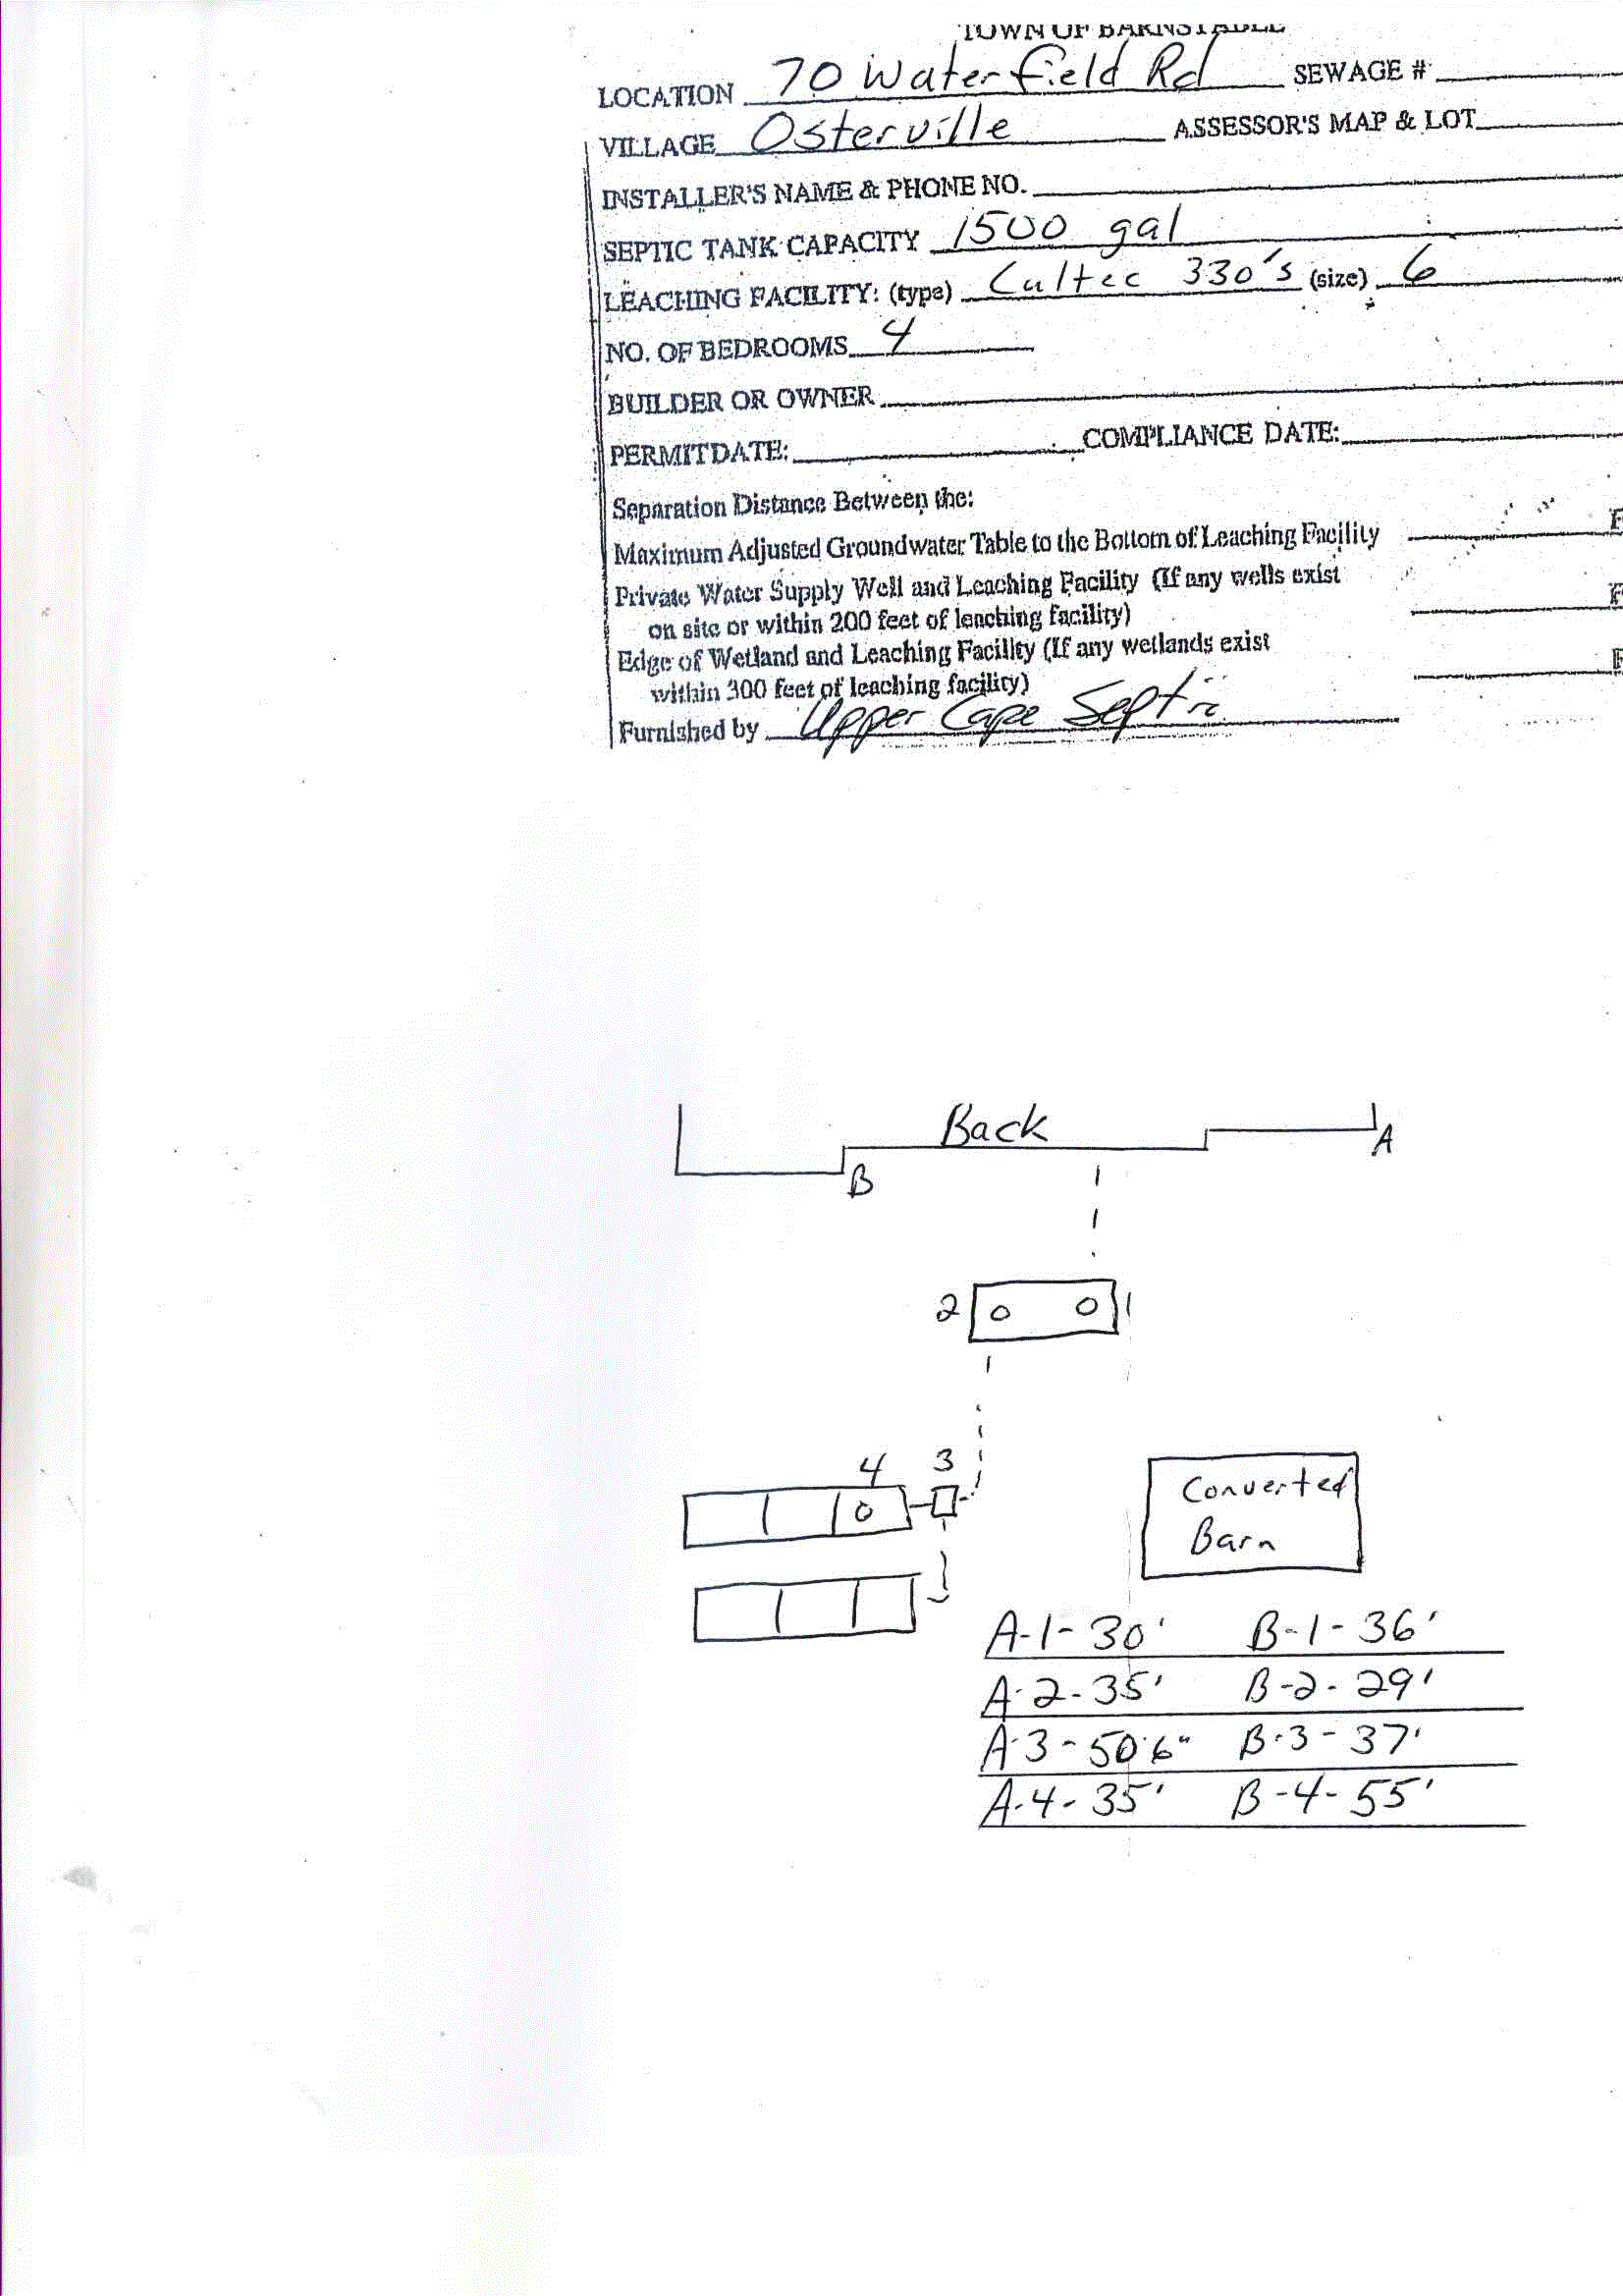 TOWN OF BARNSTABLE
LOCATION 70 Waterfield Rd SEWAGE #
VILLAGE Osterville ASSESSOR'S MAP & LOT
INSTALLER'S NAME & PHONE NO.
SEPTIC TANK CAPACITY 1500 gal
LEACHING FACILITY: (type) Cultec 330's (size) 6
NO. OF BEDROOMS 4
BUILDER OR OWNER
PERMITDATE: COMPLIANCE DATE:
Separation Distance Between the:
Maximum Adjusted Groundwater Table to the Bottom of Leaching Facility F
Private Water Supply Well and Leaching Facility (If any wells exist
on site or within 200 feet of leaching facility) F
Edge of Wetland and Leaching Facility (If any wetlands exist
within 300 feet of leaching facility) F
Furnished by Upper Cape Septic
Back
A
B
2 1
4 3
Converted
Barn
A-1-30' B-1-36'
A-2-35' B-2-29'
A-3-50'6" B-3-37'
A-4-35' B-4-55'